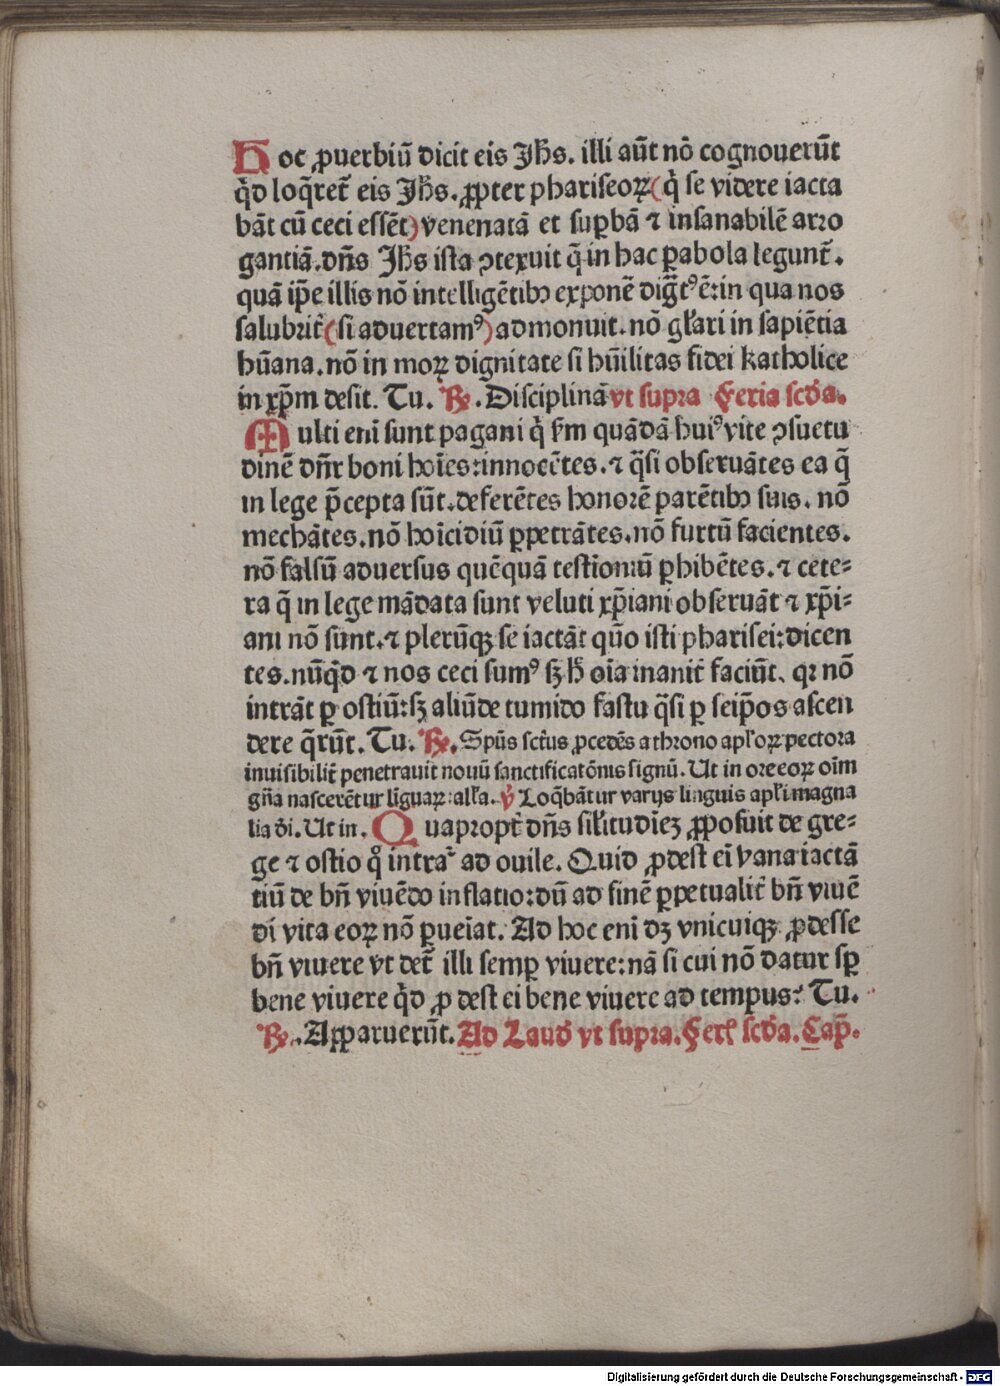 Hoc ꝓuerbiū dicit eis Jhs̄. illi aūt nō cognouerūt
q̇d loq̄ret̄ eis Jhs̄. ꝓpter phariseoꝝ (q̇ se videre iacta
bāt cū ceci essēt) venenatā et suꝑbā ⁊ insanabilē arro
gantiā. dn̄s Jhs̄ ista ↄtexuit q̄ in hac ꝑabola legunt̄.
quā ip̄e illis nō intelligētibꝫ exponē diḡtꝰ ē: in qua nos
salubrit̄ (si aduertamꝰ) admonuit. nō gl̄ari in sapiētia
hūana. nō in moꝝ dignitate si hūilitas fidei katholice
in xp̄m desit. Tu. ℞. Disciplinā vt supra Feria scd̄a.
Multi enī sunt pagani q̇ sm̄ quādā huiꝰ vite ↄsuetu
dinē dn̄r boni hoīes: innocētes. ⁊ q̄si obseruātes ea q̄
in lege p̄cepta sūt. deferētes honorē parētibꝫ suis. nō
mechātes. nō hoīcidiū ꝑpetrātes. nō furtū facientes.
nō falsū aduersus quēquā testīoniū ꝑhibētes. ⁊ cete-
ra q̄ in lege mādata sunt veluti xp̄iani obseruāt ⁊ xp̄i-
ani nō sunt. ⁊ plerūqꝫ se iactāt quō isti pharisei: dicen
tes. nūq̇d ⁊ nos ceci sumꝰ sꝫ h̄ oīa inanit̄ faciūt. qꝛ nō
intrāt ꝑ ostiū: sꝫ aliūde tumido fastu q̄si ꝑ seip̄os ascen
dere q̄rūt. Tu. ℞. Spūs sct̄us ꝓcedēs a throno apl̄oꝝ pectora
inuisibilit̄ penetrauit nouū sanctificatōnis signū. Ut in ore eoꝝ oīm
gn̄a nascerētur līguaꝝ: all̄a. ℣ Loq̄bātur varijs linguis apl̄i magna
lia dī. Ut in. Quapropt̄ dn̄s sil̄itudīeꝫ ꝓposuit de gre-
ge ⁊ ostio qͦ intraᷓ ad ouile. Quid ꝓdest eī vana iactā
tiū de bn̄ viuēdo inflatio: dū ad finē ꝑpetualit̄ bn̄ viuē
di vita eoꝝ nō ꝑueīat. Ad hoc enī dꝫ vnicuiqꝫ ꝓdesse
bn̄ viuere vt det̄ illi semꝑ viuere: nā si cui nō datur sꝑ
bene viuere q̇d ꝓ dest ei bene viuere ad tempus: Tu.
℞. Apparuerūt. Ad Laud̄ vt supra. Ferl̄ scd̄a. Cap̄.
Digitalisierung gefördert durch die Deutsche Forschungsgemeinschaft - DFG